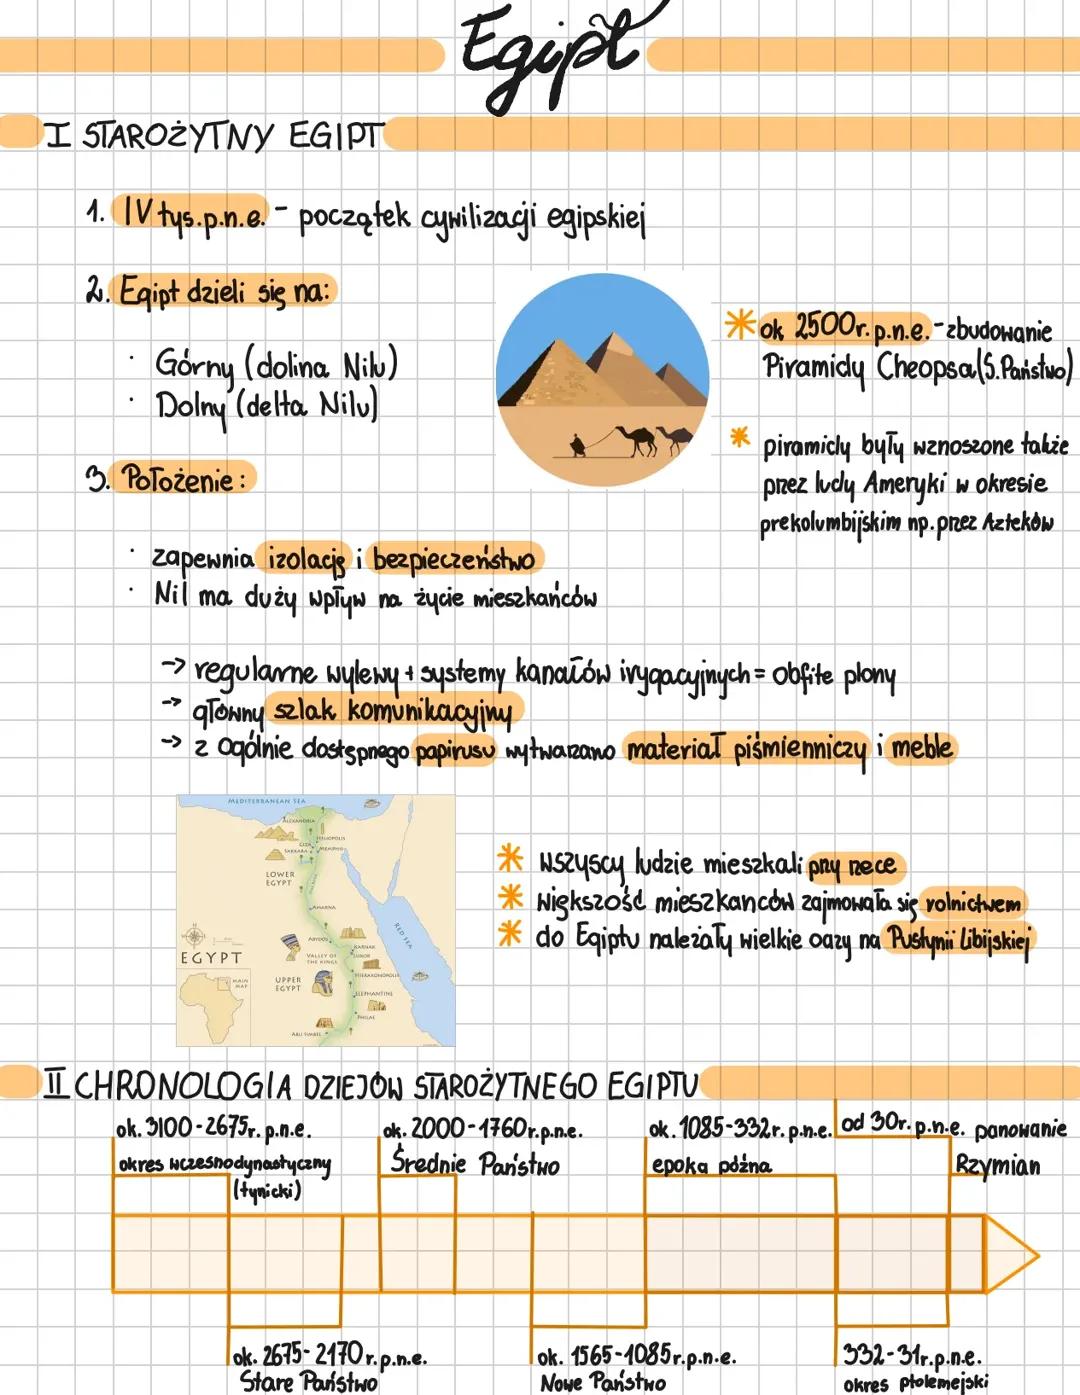 Egipt
I STAROŻYTNY EGIPT
1. IV tys.p.n.e. - początek cywilizacji egipskiej
2. Egipt dzieli się na:
· Górny (dolina Nilu)
· Dolny (delta Nilu)
* ok 2500r.p.n.e. - zbudowanie
Piramidy Cheopsa (S.Państwo)
* piramidy były wznoszone także
przez ludy Ameryki w okresie
prekolumbijskim np. przez Azteków
3. Położenie:
· zapewnia izolację i bezpieczeństwo
· Nil ma duży wpływ na życie mieszkańców
→ regularne wylewy + systemy kanałów irygacyjnych = obfite plony
→ główny szlak komunikacyjny
→ z ogólnie dostępnego papirusu wytwarzano materiał piśmienniczy i meble
MEDITERRANEAN SEA
ALEXANDRIA
HELIOPOLIS
GIZA
SAKKARA
MEMPHIS
LOWER
EGYPT
AMARNA
RED SEA
ABYDOS
KARNAK
LUXOR
VALLEY OF
THE KINGS
EGYPT
UPPER
EGYPT
HIERAKONOPOLIS
MAIN
MAP
ELEPHANTINE
PHILAE
ABU SIMBEL
* wszyscy ludzie mieszkali przy rzece
* większość mieszkanców zajmowała się rolnictwem
* do Egiptu należały wielkie oazy na Pustynii Libijskiej
II CHRONOLOGIA DZIEJÓW STAROŻYTNEGO EGIPTU
ok. 3100-2675r. p.n.e.
okres wczesnodynastyczny
(tynicki)
ok. 2000-1760r.p.n.e.
Średnie Państwo
ok. 1085-332r. p.n.e.
epoka późna
od 30r. p.n.e. panowanie
Rzymian
ok. 2675-2170r.p.n.e.
Stare Państwo
ok. 1565-1085r.p.n.e.
Nowe Państwo
332-31r.p.n.e.
okres ptolemejski